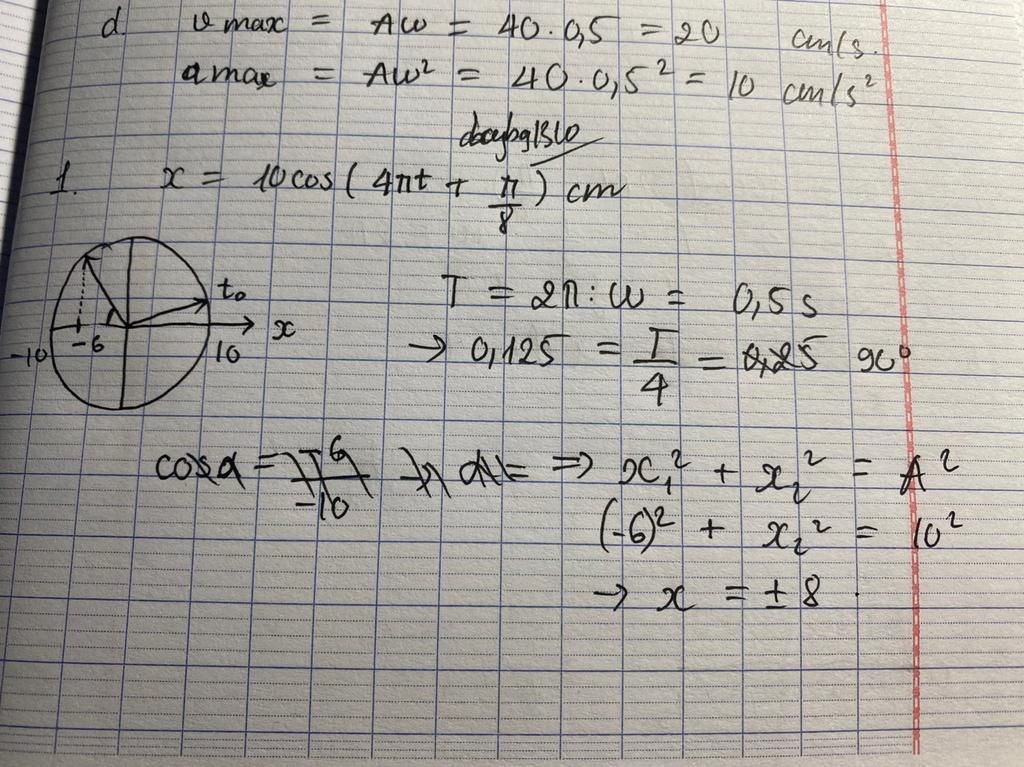 d. v max = Aω = 40 . 0,5 = 20 cm/s.
a max = Aω² = 40 . 0,5² = 10 cm/s²
1. x = 10cos(4πt + π/8) cm
t₀
x
-10 -6 10
T = 2π : ω = 0,5 s
→ 0,125 = T/4 = 90°
cosα = -6/-10 => x₁² + x₂² = A²
(-6)² + x₂² = 10²
→ x = ±8.